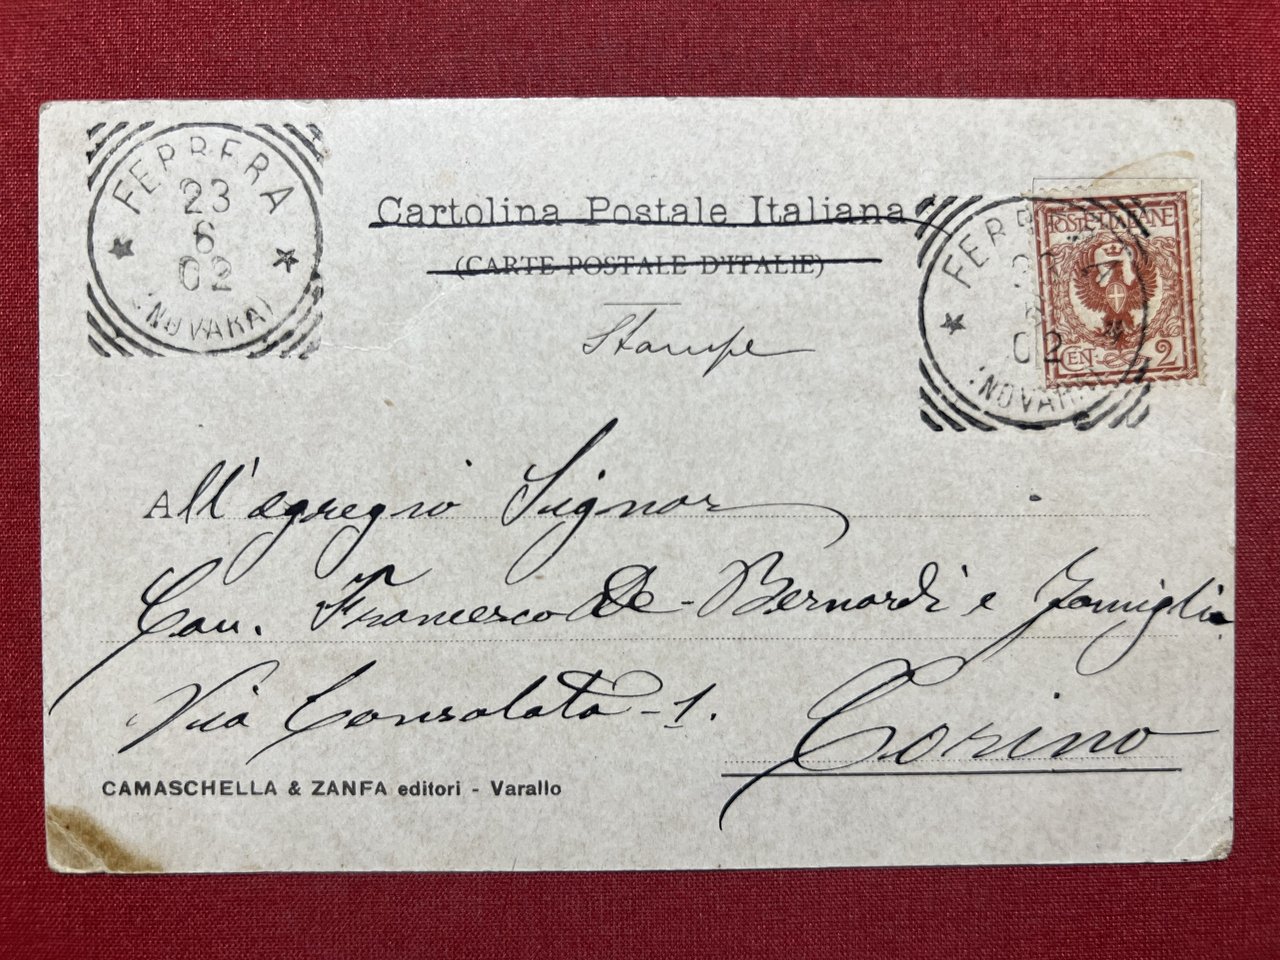 FERRERA
23
6
02
(NOVARA)
Cartolina Postale Italiana
(CARTE POSTALE D'ITALIE)
Stampe
FERRERA
23
6
02
(NOVARA)
POSTE ITALIANE
CEN. 2
All'egregio Signor
Cav. Francesco De-Bernardi e famiglia
Via Consolata - 1.
Torino
CAMASCHELLA & ZANFA editori - Varallo